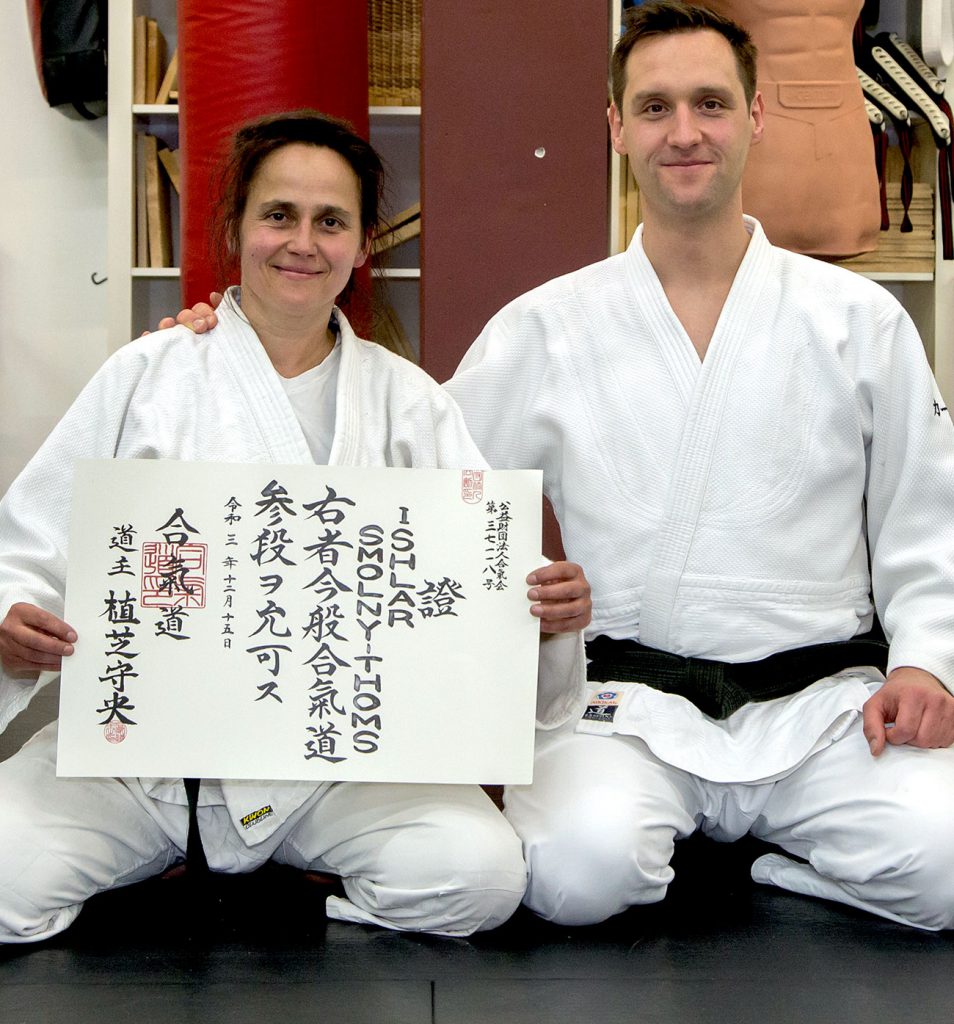 公益財団法人合氣会
第三七一一八号
證
ISHLAR
SMOLNY-THOMS
右者今般合氣道
参段ヲ允可ス
令和三年十二月十五日
合氣道
道主 植芝守央
KWON
カー